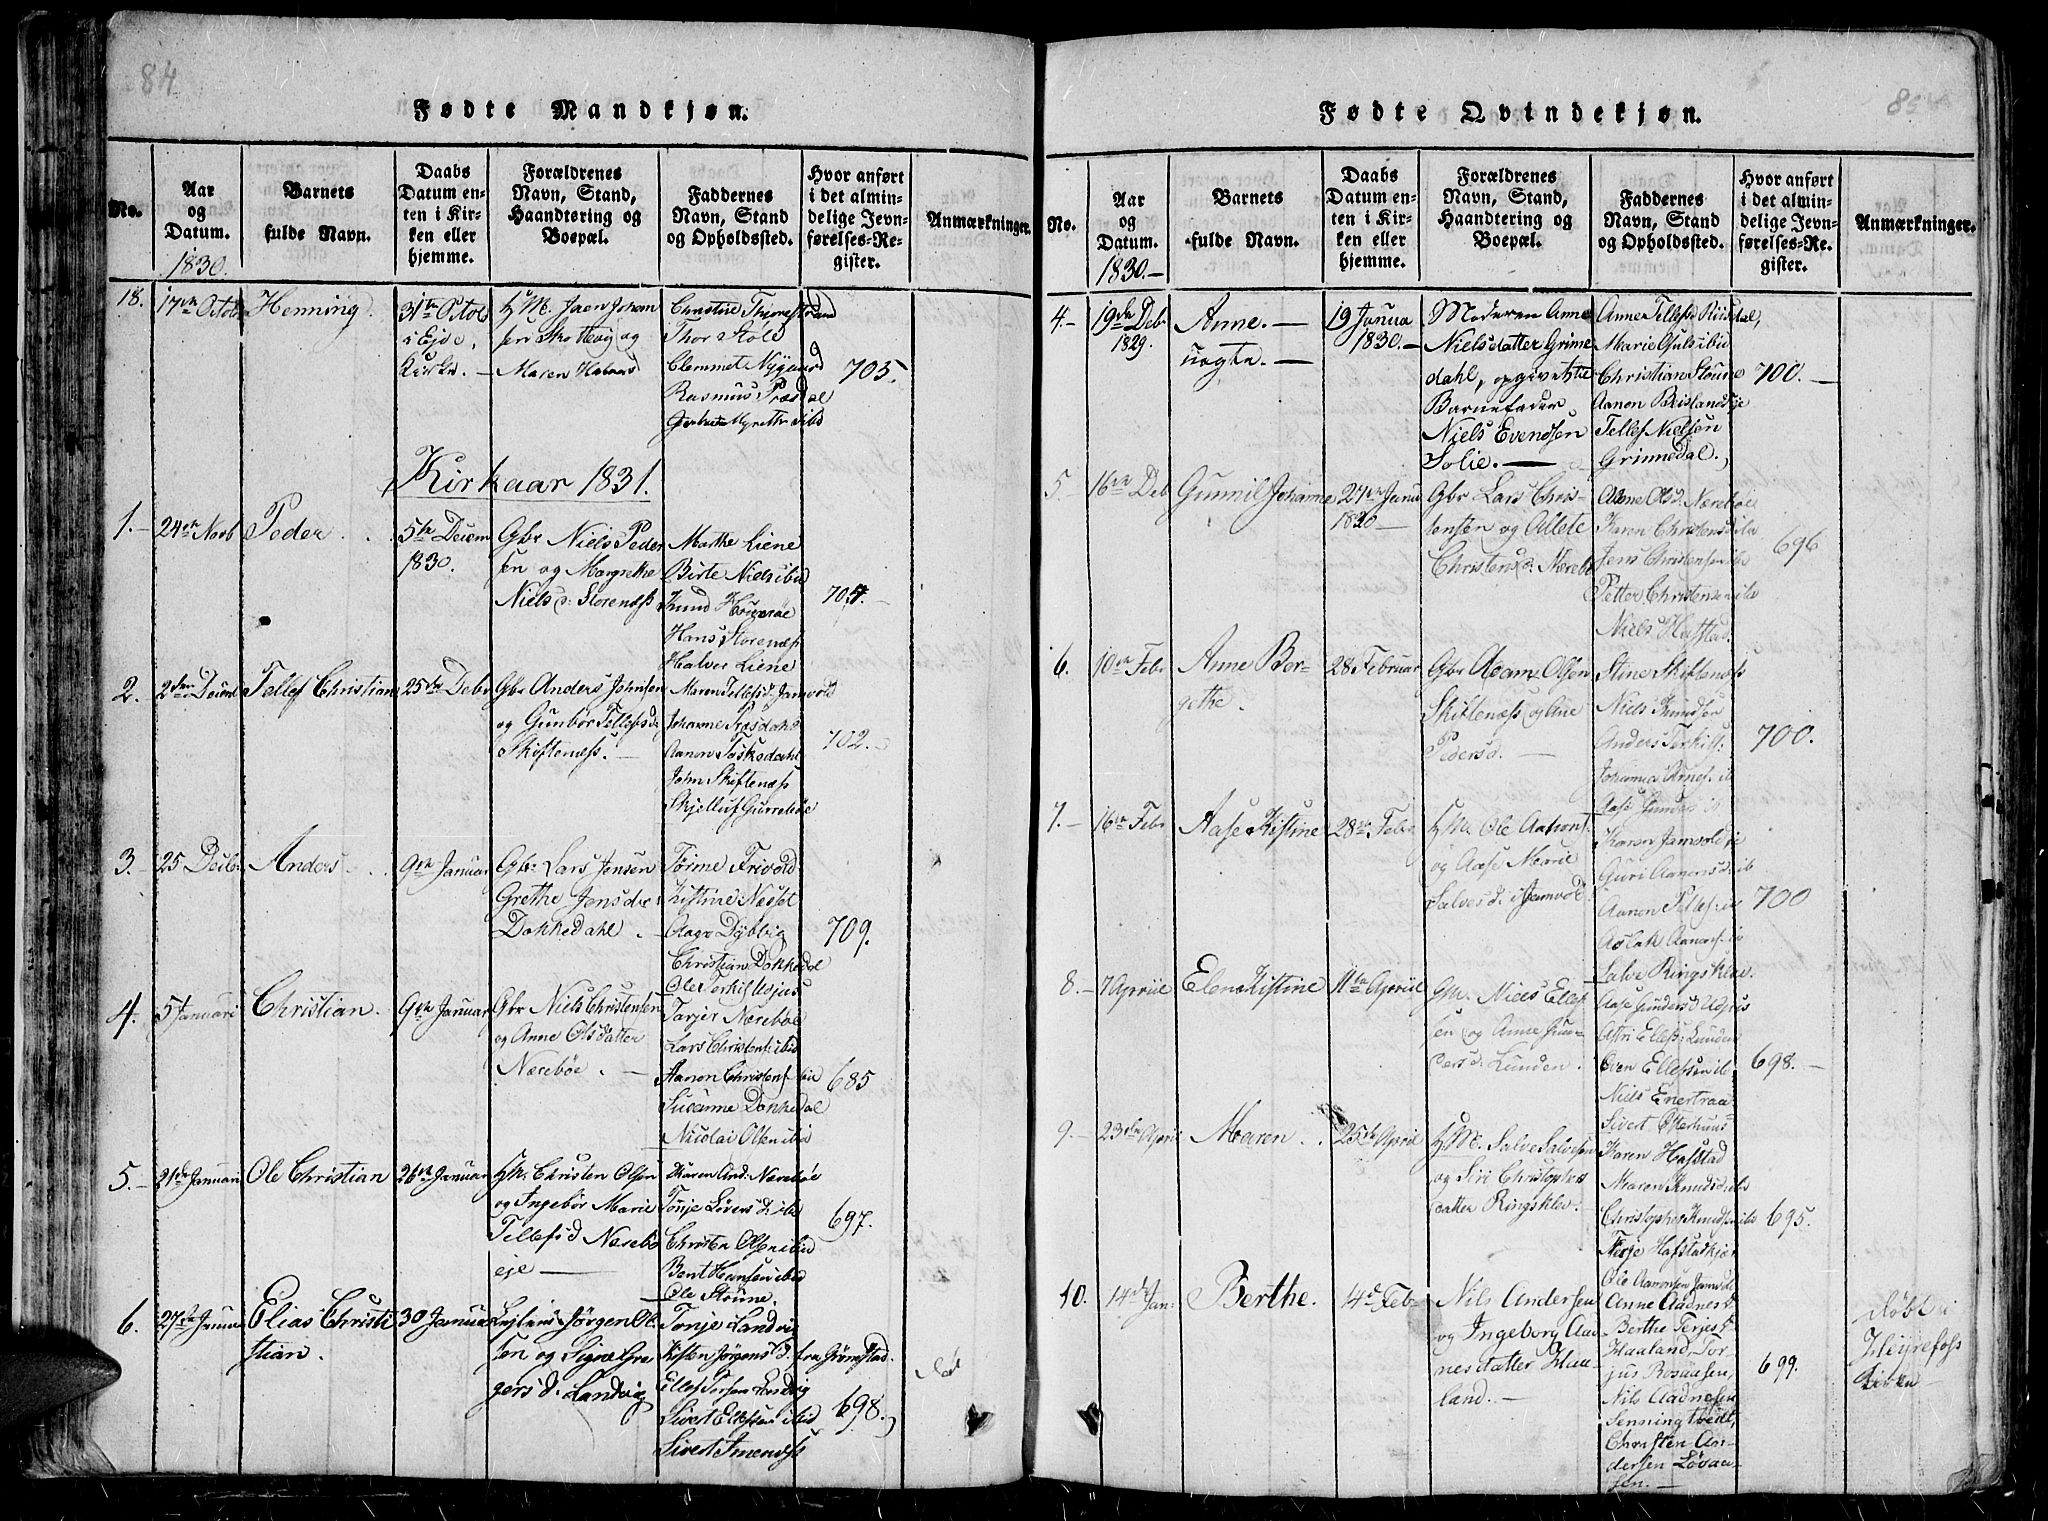 84
Fødte Mandkjøn.
No.
Aar
og
Datum.
1830.
Barnets
fulde Navn.
Daabs
Datum en-
ten i Kir-
ken eller
hjemme.
Forældrenes
Navn, Stand,
Haandtering og
Boepæl.
Faddernes
Navn, Stand
og Opholdssted.
Hvor anført
i det almin-
delige Jevn-
førelses-Re-
gister.
Anmærkninger.
18.
17de Octob
Henning
31te Octob
i Eje
Kirke.
HM. Jren Johan
sen Skottevig og
Maren
Christine
Thor
Clemmet Nygaard
Rasmus Præsdal
705.
Kirkaar 1831.
1.
24de Novb
Peder
5te Decem
1830.
Gbr Niels Peder
sen og Margrethe
Niels d: Storenæss
Marthe Liene
Birte Niels ibid
Knud
Hans Storenæss
Halver Liene
704.
2.
2den Decmb
Tellef Christian
25de Debr
Gbr Anders Johnsen
og Gunbör Tellefsd
Skiftenæss.
Maren Tellefsd. Jamvold
Johanne Præsdahl
Aanon
John Skiftenæss
Skjelluf Gurrebøe
702.
3.
25 Decbr
Anders
9de Januar
Gbr Lars Jensen
Grethe Jensdr
Dokkedahl
Tørine Frivold
Kistine Nesset
Aage Dybvig
Christian Dokkedal
Ole Terkilds
709.
4.
5 Januari
Christian
9de Januar
Gbr Niels Christensen
og Anne Olsdatter
Nærebøe
Tarjer Nærebøe
Lars Christens. ibid
Aanon Christens ibid
Susanne Dokkedal
Nicolai Olsen ibid
685
5.
21de Januari
Ole Christian
26de Januar
HM. Christen Olsen
og Ingebør Marie
Tellefsd Nærebø
eje
Karen And. Nærebøe
Tønje Løvers d. ibd
Christen Olsen ibid
Bent Hansen ibid
Ole Støline.
697.
6.
27de Janua
Elias Christi
tian.
30 Janua
Jørgen Ol
sen og Signe Gre
gers d. Landvig
Tønje Landvig
Kisten Jørgens d. fra Grimstad
Ellef
Sivert Ellefsen ibid
Sivert
698.
död
85
Fødte Qvindekjøn.
No.
Aar
og
Datum.
1830.
Barnets
fulde Navn.
Daabs
Datum en-
ten i Kir-
ken eller
hjemme.
Forældrenes
Navn, Stand,
Haandtering og
Boepæl.
Faddernes
Navn, Stand
og Opholdssted.
Hvor anført
i det almin-
delige Jevn-
førelses-Re-
gister.
Anmærkninger.
4.
19de Deb
1829.
Anne.
uægte.
19 Janua
1830.
Moderen Anne
Nielsdatter Grime
dahl, opgivet til
Barnefader
Niels Evendsen
Solie.
Anne Tellefs Riisdal,
Marie
Christian Støline
Aanon
Tellef Nielsen
Grimedal.
700.
5.
16de Deb
Gunnil Johanne
27de Janu
1830
Gbr Lars Chris-
tensen og Aslete
Christens d: Nærebø
Anne Olsd Nærebøe
Karen Christensd ibd
Jens Christensen ibd
Petter Christensen ibd
Niels Hafstad.
696
6.
10de Febr
Anne Ber-
gethe.
28 Februar
Gbr Adam Olsen
Skiftenæss og Ane
Pedersd.
Stine Skiftenæss
Niels Knudsen
Anders Terkils.
700.
7.
16de Febr
Aase Kistine
28de Feb
HM. Ole Aanons.
og Aase Marie
Salves d: Jamvold
Karen Jamvold
Guri Aanonsd. ib
Aanon Tellefs. ib
Aslak Aanons. ib
Salve Ringsklev
700
8.
7 Apriil
Elen Kistine
11te Apriil
HM. Niels Ellef
sen og Anne Gun-
ders d. Lunden.
Aase Gundersd
Astri Ellefs: Lunden
Even Ellefsen ib
Niels
Sivert Osterhuus
698.
9.
23de April
Maren
25de Apriil
HM. Salve Salvesen
og Siri Christophers
datter Ringsklev.
Karen Hafstad
Maren Knudsd. ib
Christopher Knudsen ib
Terje Hafstadkjær
Ole Aanonsen Jamvold
695.
10.
14de Jan.
Berthe.
14de Feb
Nils Andersen
og Ingeborg Aad-
nesdatter Haa-
land.
Anne Aadnesd.
Berthe Terjesd.
Haaland, Tor-
jus Rosaasen,
Nils Aadnesen
Senningtvedt,
Christen An-
dersen Løvaa-
sen.
699.
döbt i
Heyrefoss
Kirke